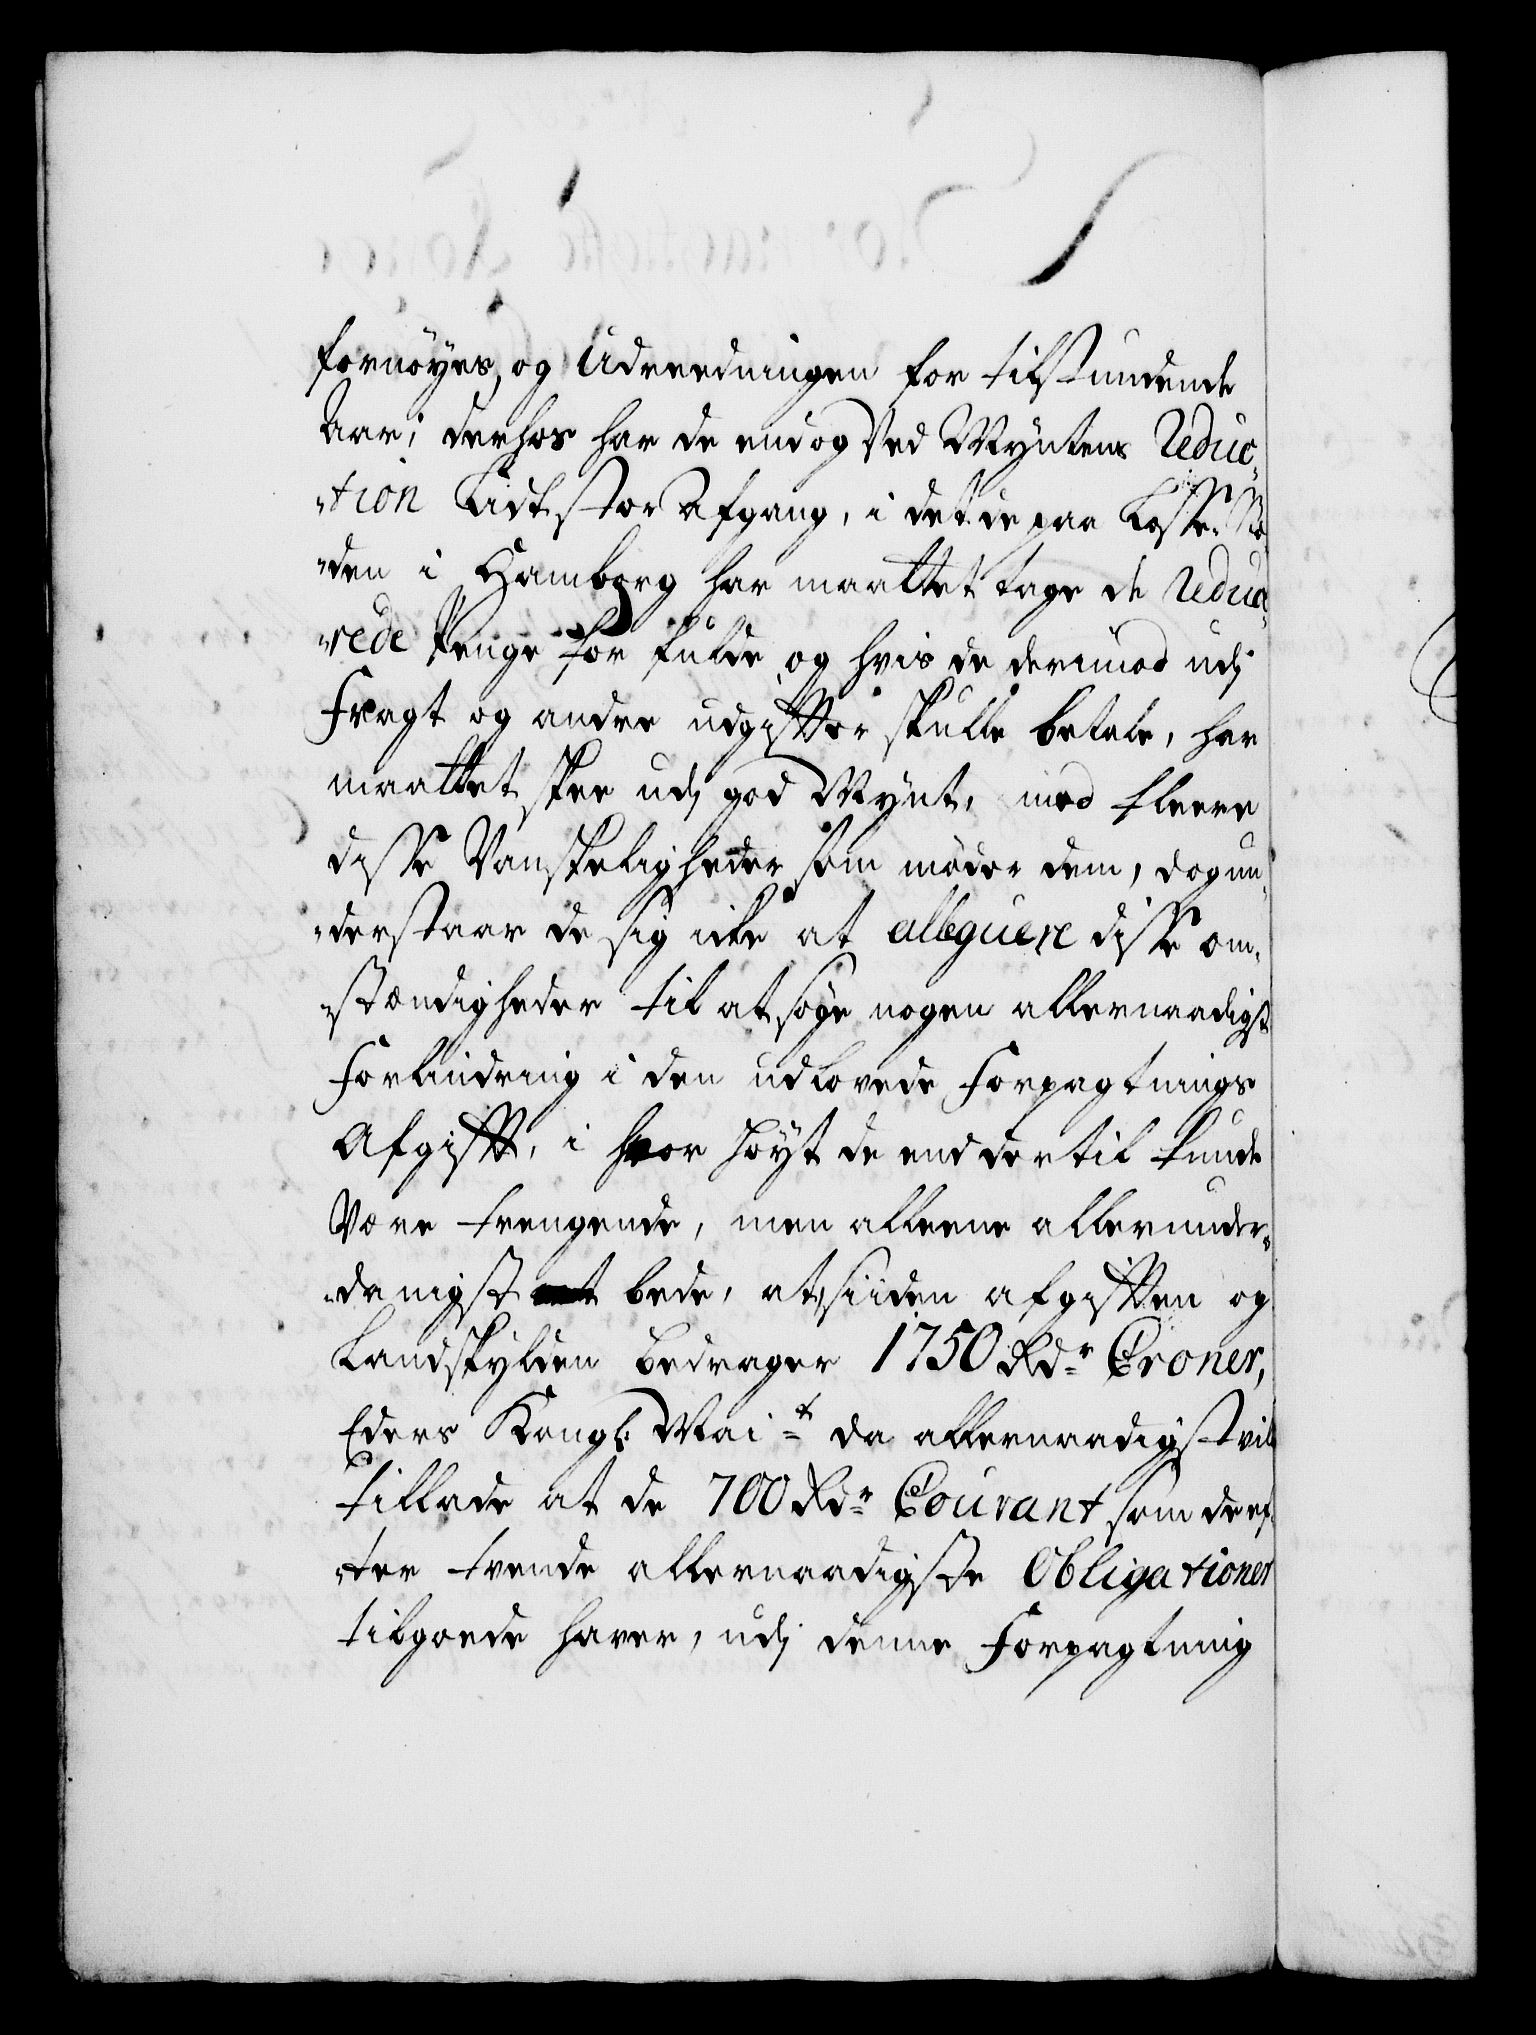 fornöyes, og Udreedningen for tilstundende
Aar; derhos har de endog Ved Myntens Reduc„
„tion Lidt stor Afgang, i det de paa Losse-Stæ
„den i Hamborg har maattet tage de Reduce„
„rede Penge for fulde, og hvis de derimod udj
Fragt og andre udgiffter skulle betale, har
maattet skee udj god Mynt, med fleere
disse Vanskeligheder som møder dem, dog un„
„derstaar de sig icke at alleguere disse om„
„stændigheder til at søge nogen allernaadigst
Forlindring i den udlovede Forpagtnings
Afgifft, i hvor höyt de end dertil kunde
Være trengende, men alleene allerunder„
„danigst at bede, at siiden afgifften og
Landskylden bedrager 1750 Rdr Croner,
Eders Kongl: Mait da allernaadigst vil
tillade at de 700 Rdr Courant som de ef„
„ter tvende allernaadigste Obligationer
tilgoede haver, udj denne Forpagtning